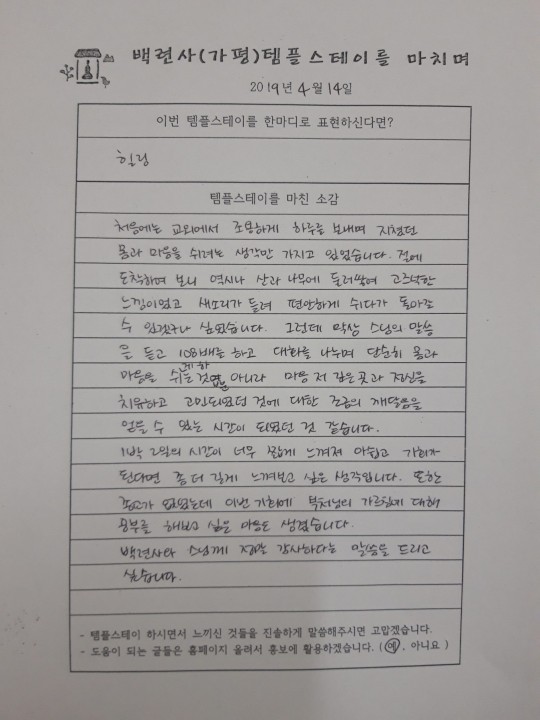 백련사(가평)템플스테이를 마치며
2019년 4월 14일
이번 템플스테이를 한마디로 표현하신다면?
힐링
템플스테이를 마친 소감
처음에는 교외에서 조용하게 하루를 보내며 지쳤던
몸과 마음을 쉬려는 생각만 가지고 있었습니다. 절에
도착하여 보니 역시나 산과 나무에 둘러쌓여 고즈넉한
느낌이었고 새소리가 들려 편안하게 쉬다가 돌아갈
수 있겠구나 싶었습니다. 그런데 막상 스님의 말씀
을 듣고 108배를 하고 대화를 나누며 단순히 몸과
마음을 쉬게하는 것 아니라 마음 저 깊은 곳과 정신을
치유하고 고민되었던 것에 대한 조금의 깨달음을
얻을 수 있는 시간이 되었던 것 같습니다.
1박 2일의 시간이 너무 짧게 느껴져 아쉽고 기회가
된다면 좀 더 길게 느껴보고 싶은 생각입니다. 또한
종교가 없었는데 이번 기회에 부처님의 가르침에 대해
공부를 해보고 싶은 마음도 생겼습니다.
백련사와 스님께 정말 감사하다는 말씀을 드리고
싶습니다.
- 템플스테이 하시면서 느끼신 것들을 진솔하게 말씀해주시면 고맙겠습니다.
- 도움이 되는 글들은 홈페이지 올려서 홍보에 활용하겠습니다. (예, 아니요)